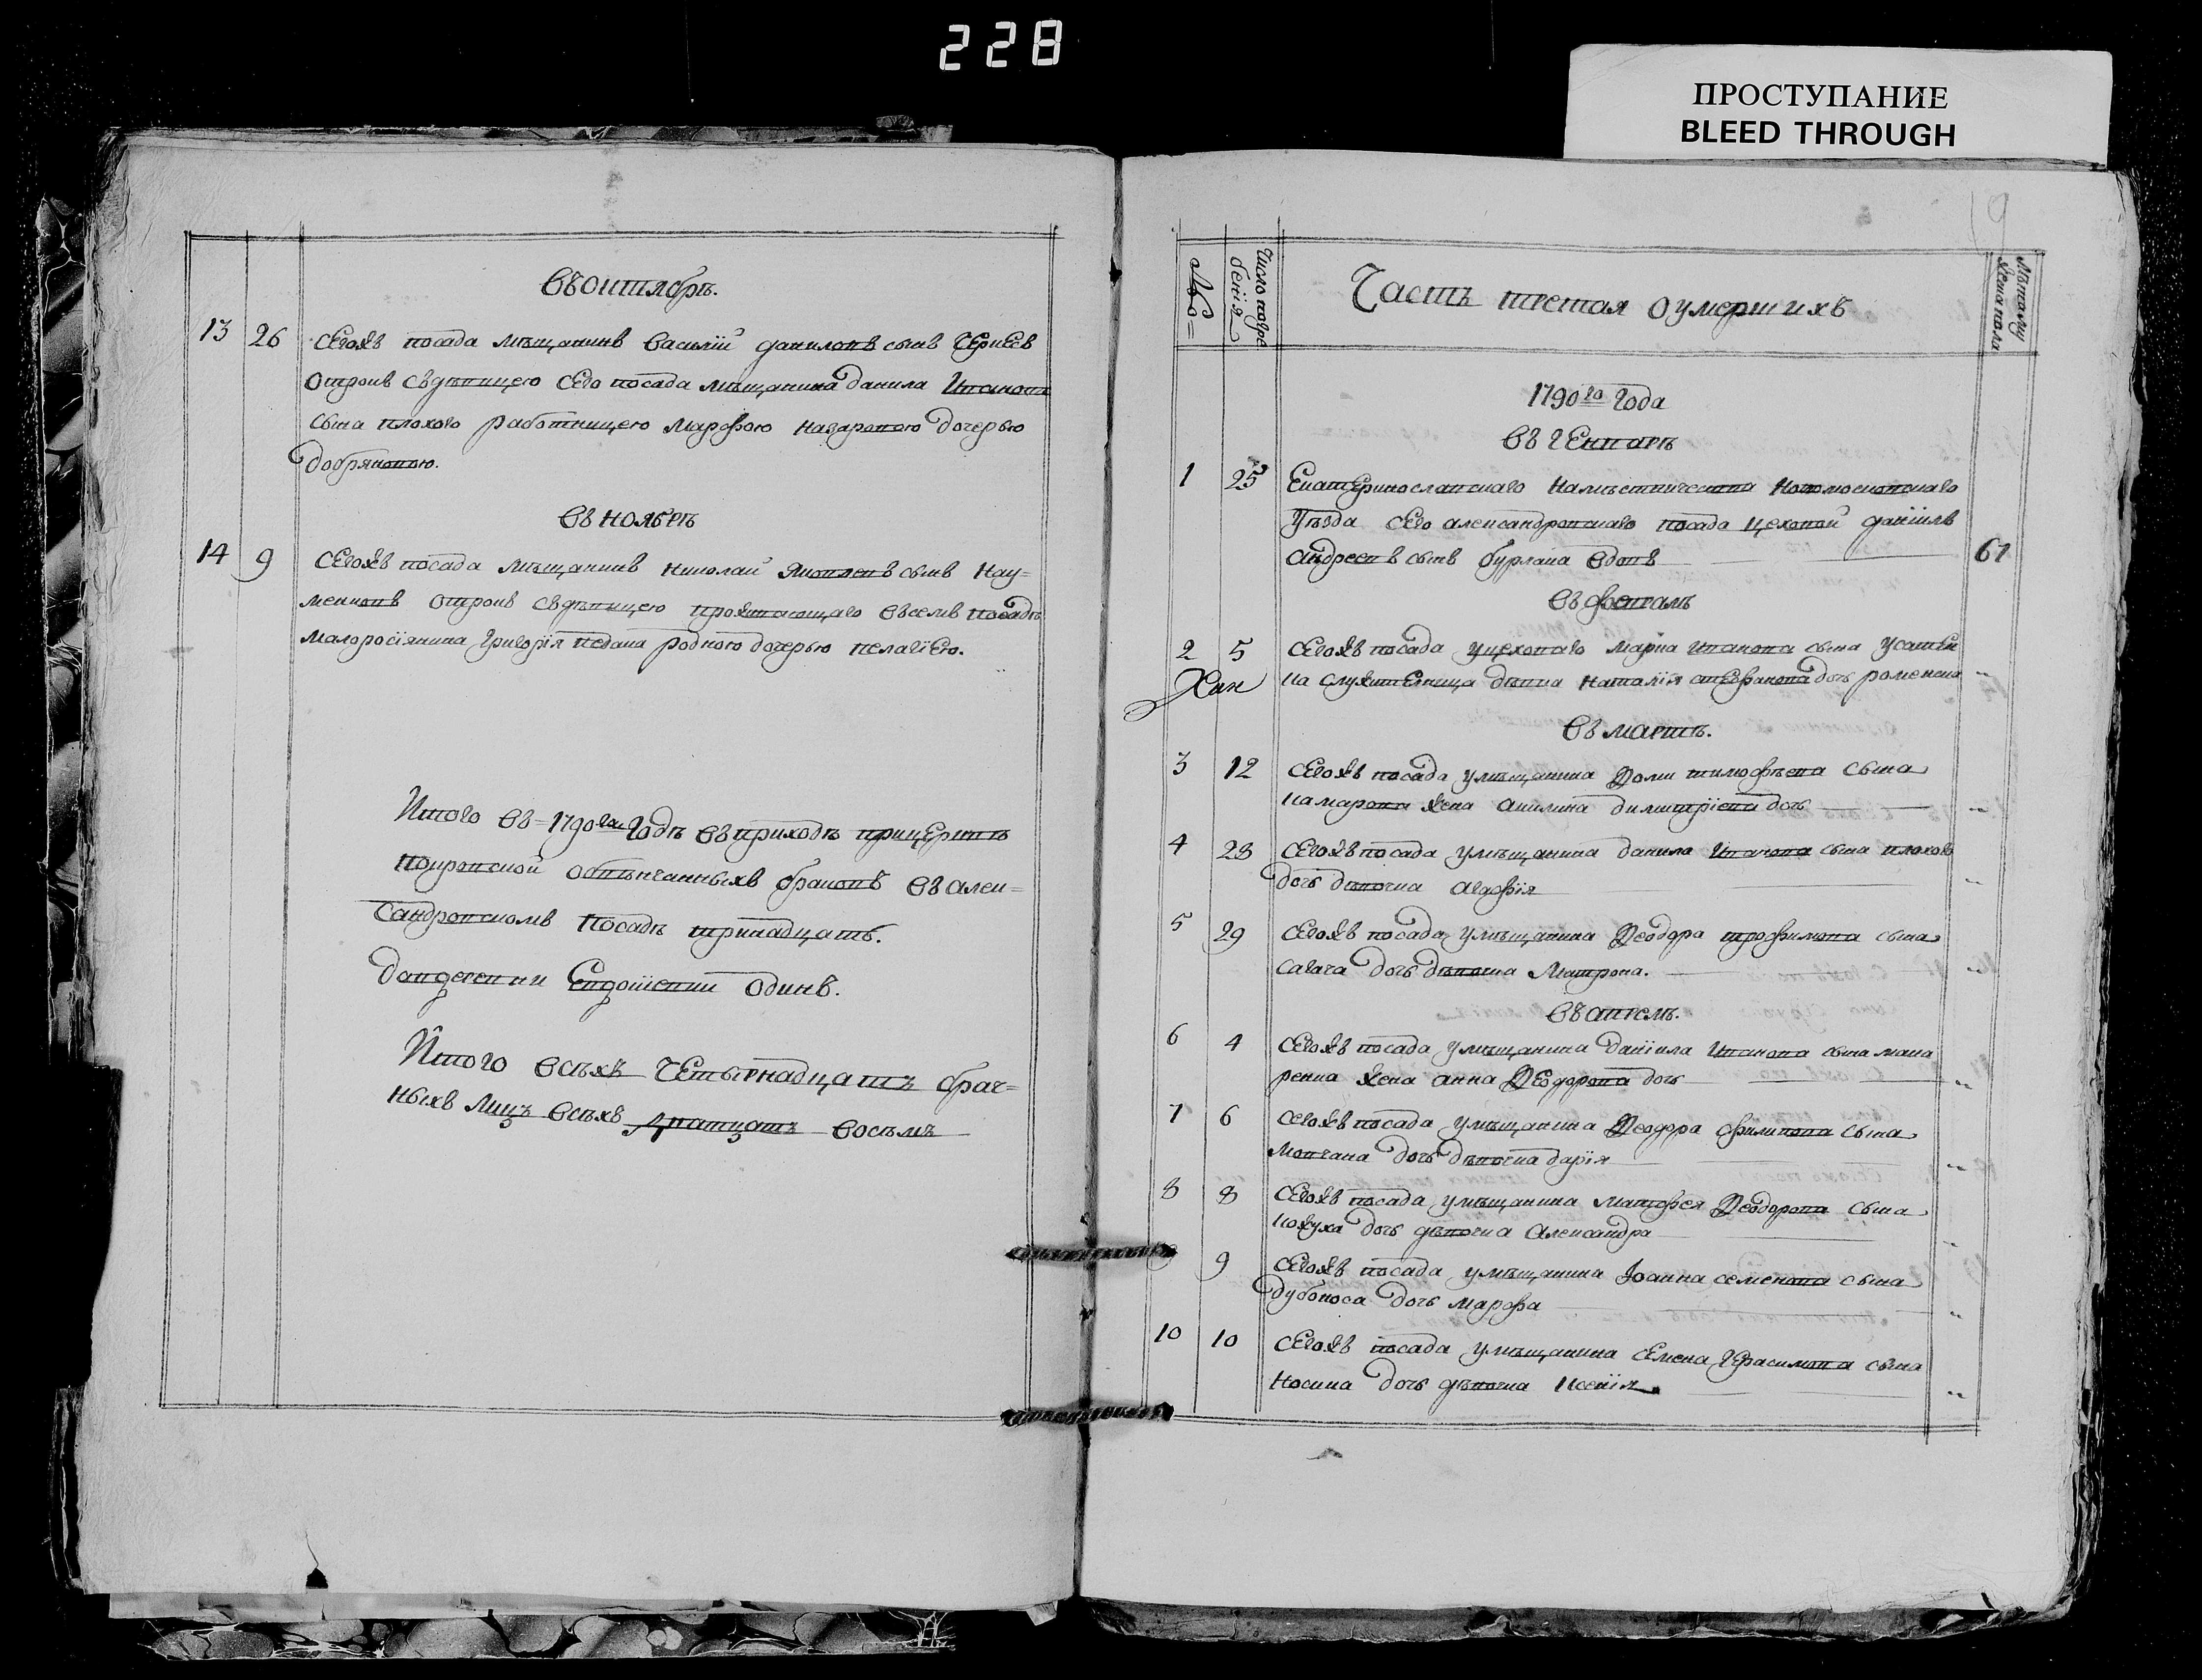 228
ПРОСТУПАНИЕ
BLEED THROUGH
Въ октябрѣ.
13 26 Сегожъ посада мѣщанинъ Василій Даниловъ сынъ Сѣриевъ
отрокъ съ дѣвицею сего посада мѣщанина Данила Иванова
сына Плохого работницею Марфою Назаровою дочерью
Добряновою.
Въ Ноябрѣ
14 9 Сегожъ посада мѣщанинъ Николай Яковлевъ сынъ Нау=
менковъ отрокъ съ дѣвицею проживающаго въ семъ посадѣ
малоросіянина Григорія родною дочерью Пелагіею.
Итого въ 1790го Годѣ въ приходѣ при церкви
Покровской обвѣнчанныхъ браковъ въ Алек=
сандровскомъ посадѣ тринадцать.
одинъ.
Итого всѣхъ Четырнадцать брач=
ныхъ лицъ всѣхъ дватцать восѣмъ
№
Число погре
бенія
Часть третая о умершихъ
Мужеска
Женска пола
1790го Года
Въ Генварѣ
1 25 Екатеринославскаго Намѣстничества Новомосковскаго
Уѣзда сего Александровскаго посада цеховой Даніилъ
Андреевъ сынъ Бурлака вдовъ 61
Въ Февралѣ
2 5 Сегожъ посада у цеховаго Марка Иванова сына Усатен
ка служителница дѣвка Наталія Стефанова дочь Роменска
Въ мартѣ.
3 12 Сегожъ посада у мѣщанина Ѳоми Тимофѣева сына
Комарова жена Акилина Димитріева дочь
4 23 Сегожъ посада у мѣщанина Данила Иванова сына Плохого
дочь дѣвочка Агафія
5 29 Сегожъ посада у мѣщанина Ѳеодора Трофимова сына
Сагача дочь дѣвочка Матрона.
Въ апрелѣ.
6 4 Сегожъ посада у мѣщанина Даніила Иванова сына Мака
ренка жена Анна Ѳеодорова дочь
7 6 Сегожъ посада у мѣщанина Ѳеодора Филипова сына
Мовчана дочь дѣвочка Дарія
8 8 Сегожъ посада у мѣщанина Матфея Ѳеодорова сына
Кожуха дочь дѣвочка Александра
9 Сегожъ посада у мѣщанина Іоанна Семенова сына
Дубоноса дочь Марфа
10 10 Сегожъ посада у мѣщанина Семена Герасимова сына
Носика дочь дѣвочка Ксенія